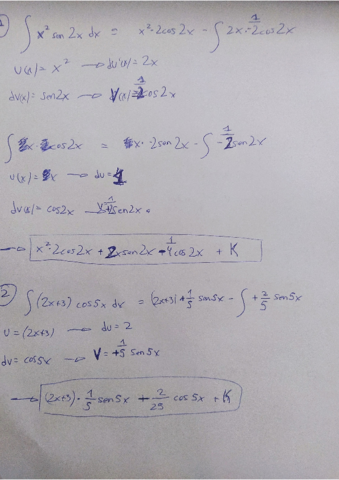 ∫ x² sen 2x dx = x²·2cos2x - ∫ 2x·-2cos2x
u(x) = x² → du(x) = 2x
dv(x) = sen2x → V(x) = cos2x
cos2x = x·2sen2x - ∫ - 2sen2x
u(x) = x → du =
dv(x) = cos2x sen2x
→ x²·2cos2x + 2xsen2x - 1/4 cos2x + K
2 ∫ (2x+3) cos5x dx = (2x+3) + 1/5 sen5x - ∫ + 2/5 sen5x
u = (2x+3) → du = 2
dv = cos5x → V = + 1/5 sen5x
→ (2x+3) · 1/5 sen5x + 2/25 cos5x + K